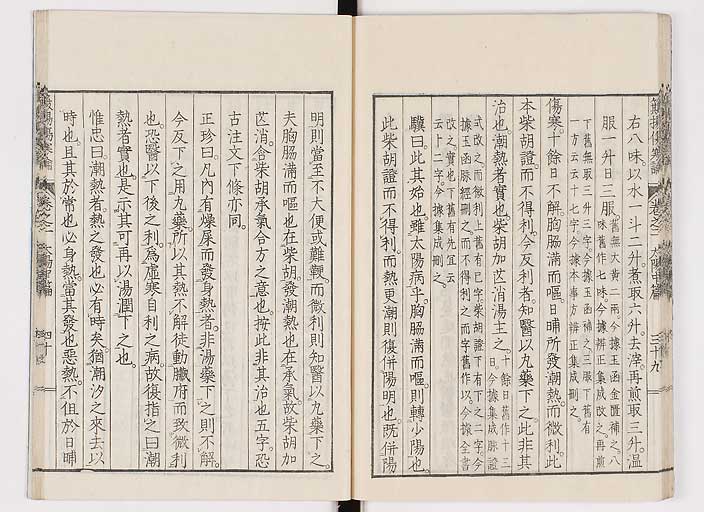 右八味以水一斗二升煮取六升去滓再煎取三升溫
服一升日三服舊無大黃二兩今據玉函金匱補之八
味舊作七味今據辨正集成改之再煎
下舊無取三升三字今據玉函補之三服下舊有
一方云云十七字今據本事方辨正集成刪之
傷寒十餘日不解胸脇滿而嘔日晡所發潮熱而微利此
本柴胡證而不得利今反利者知醫以丸藥下之此非其
治也潮熱者實也柴胡加芒消湯主之十餘日舊作十三
日今據集成
改之實也下舊有先宜云
云十二字今據集成刪之
驥曰此其始也雖太陽病乎胸脇滿而嘔則轉少陽也
此柴胡證而不得利而熱更潮則復併陽明也既併陽
明則當至不大便或難鞕而微利則知醫以丸藥下之
夫胸脇滿而嘔也在柴胡發潮熱也在承氣故柴胡加
芒消合柴胡承氣合方之意也按此非其治也五字恐
古注文下條亦同
正珍曰凡內有燥屎而發身熱者非湯藥下之則不解
今反下之用丸藥所以其熱不解徒動臟府而致微利
也恐醫以下後之利為虛寒自利之病故復指之曰潮
熱者實也是示其可再以湯潤下之也
惟忠曰潮熱者熱之發也必有時矣猶潮汐之來去以
時也且其於常也必身熱當其發也惡熱不但於日晡
卷之二
太陽中篇
三十九
四十